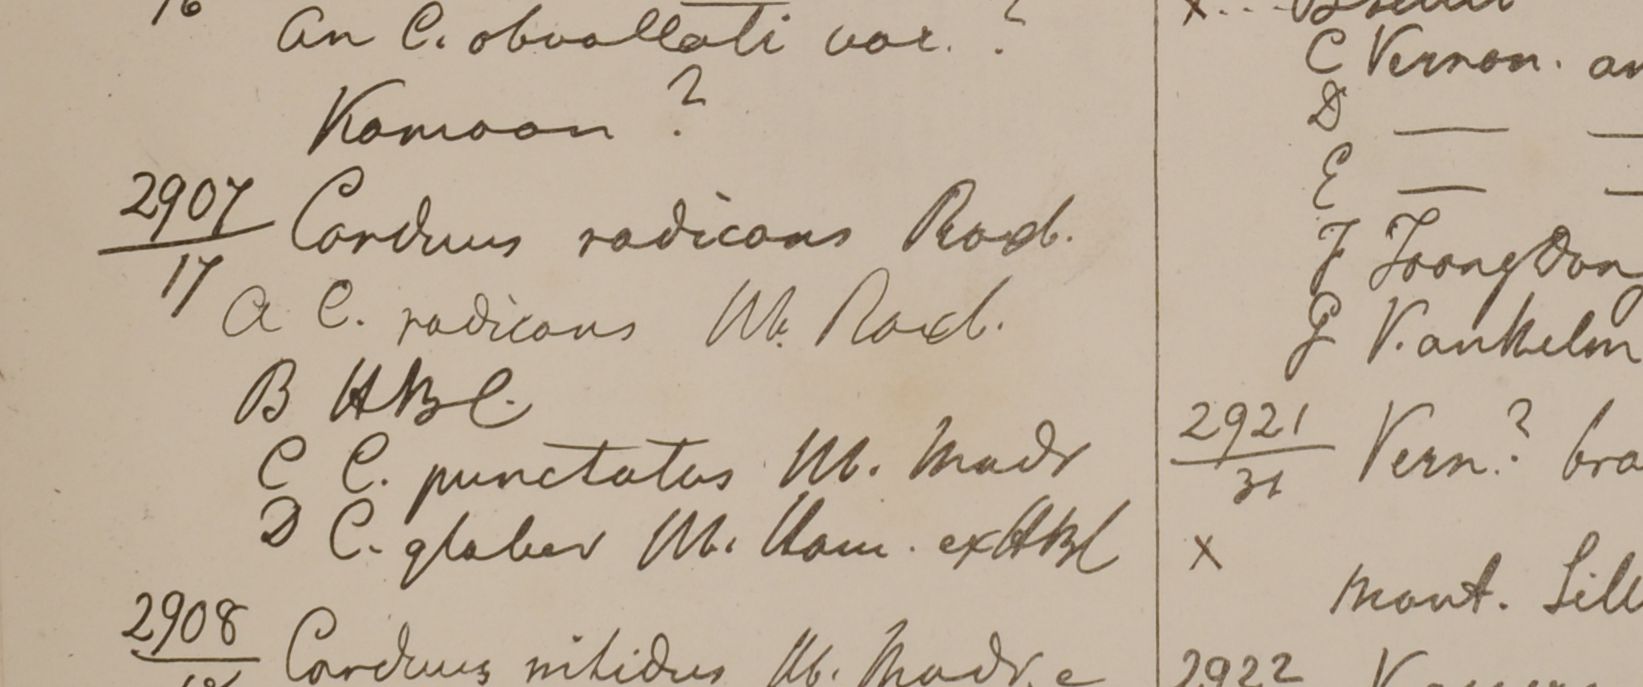 16
an C. obvallati var. ?
Kamaon ?
2907 Carduus radicans Roxb.
17
A C. radicans W. Roxb.
B HBC.
C C. punctatus W. Madr
D C. glaber W. Ham. ex HBC
2908 Carduus nitidus W. Madr. e
x...
C Vernon. an
D — —
E — —
F Toong Dong
G V. ankelm
2921 Vern.? bra
31
x
Mont. Sill
2922